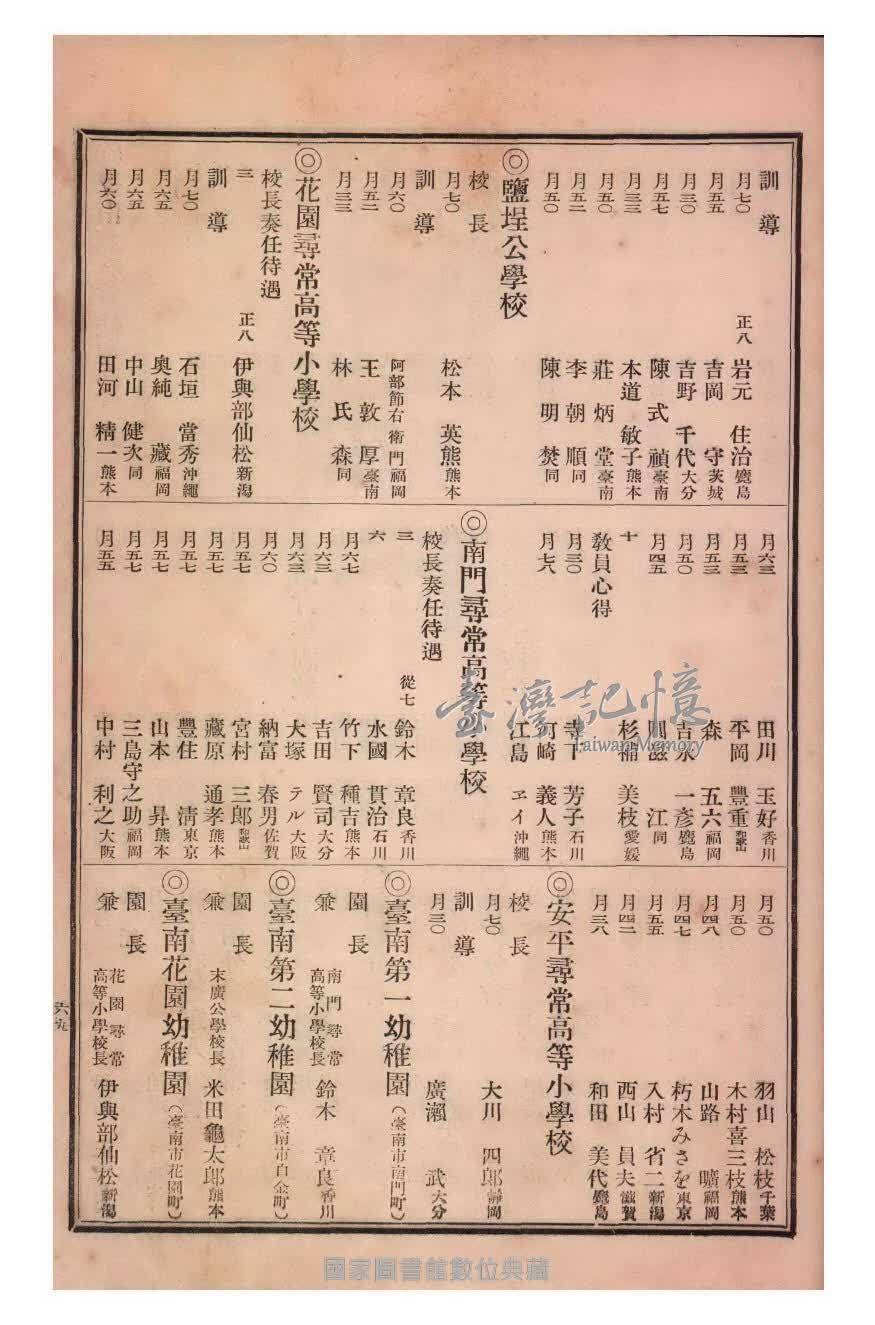 訓導
月七〇 正八 岩元 住治 鹿兒島
月五五 吉岡 守 茨城
月三〇 吉野 千代 大分
月五七 陳式禎 臺南
月三三 本道 敏子 熊本
月五〇 莊炳堂 臺南
月五二 李朝順 同
月五〇 陳明焚 同
◎鹽埕公學校
校長
月七〇 松本 英熊 熊本
訓導
月六〇 阿部節右衛門 福岡
月五二 王敦厚 臺南
月三三 林氏森 同
◎花園尋常高等小學校
校長奏任待遇
三 正八 伊與部仙松 新潟
訓導
月七〇 石垣 當秀 沖繩
月六五 奧純 藏 福岡
月六五 中山 健次 同
月六〇 田河 精一 熊本
月六三 田川 玉好 香川
月五三 平岡 豐重 和歌山
月五三 森 五六 福岡
月五〇 吉永 一彥 鹿兒島
月四五 江 同
教員心得
十 杉 美枝 愛媛
月三〇 寺下 芳子 石川
月七八 河崎 義人 熊本
江島 ヱイ 沖繩
◎南門尋常高等小學校
校長奏任待遇
三 從七 鈴木 章良 香川
六 水國 貫治 石川
月六七 竹下 種吉 熊本
月六三 吉田 賢司 大分
月六三 大塚 テル 大阪
月六〇 納富 春男 佐賀
月五七 宮村 三郎 和歌山
月五七 藏原 通孝 熊本
月五七 豐住 清 東京
月五七 山本 昇 熊本
月五七 三島守之助 福岡
月五五 中村 利之 大阪
月五〇 羽山 松枝 千葉
月五〇 木村喜三枝 熊本
月四八 山路 曠 福岡
月四七 朽木みさを 東京
月五五 入村 省二 新潟
月四二 西山 員夫 滋賀
月三八 和田 美代 鹿兒島
◎安平尋常高等小學校
校長
月七〇 大川 四郎 靜岡
訓導
月三〇 廣瀨 武 大分
◎臺南第一幼稚園(臺南市南門町)
園長
兼 南門尋常高等小學校長 鈴木 章良 香川
◎臺南第二幼稚園(臺南市白金町)
園長
兼 末廣公學校長 米田龜太郎 熊本
◎臺南花園幼稚園(臺南市花園町)
園長
兼 花園尋常高等小學校長 伊與部仙松 新潟
六九
臺灣記憶
Taiwan Memory
國家圖書館數位典藏